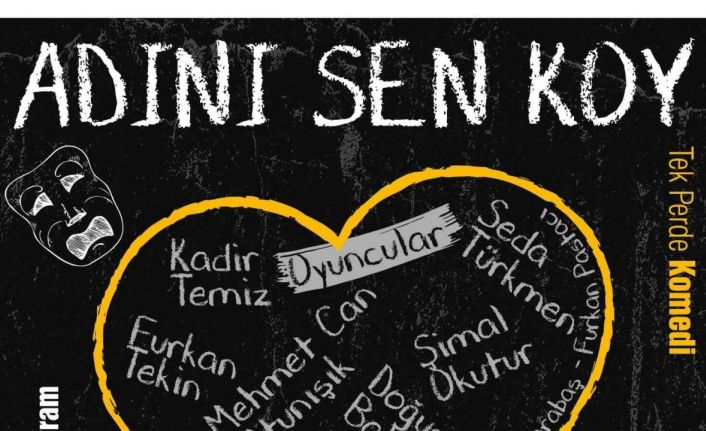 ADINI SEN KOY
Tek Perde Komedi
Oyuncular
Kadir
Temiz
Seda
Türkmen
Furkan
Tekin
Mehmet Can
Şimal
Okutur
- Furkan Pastacı